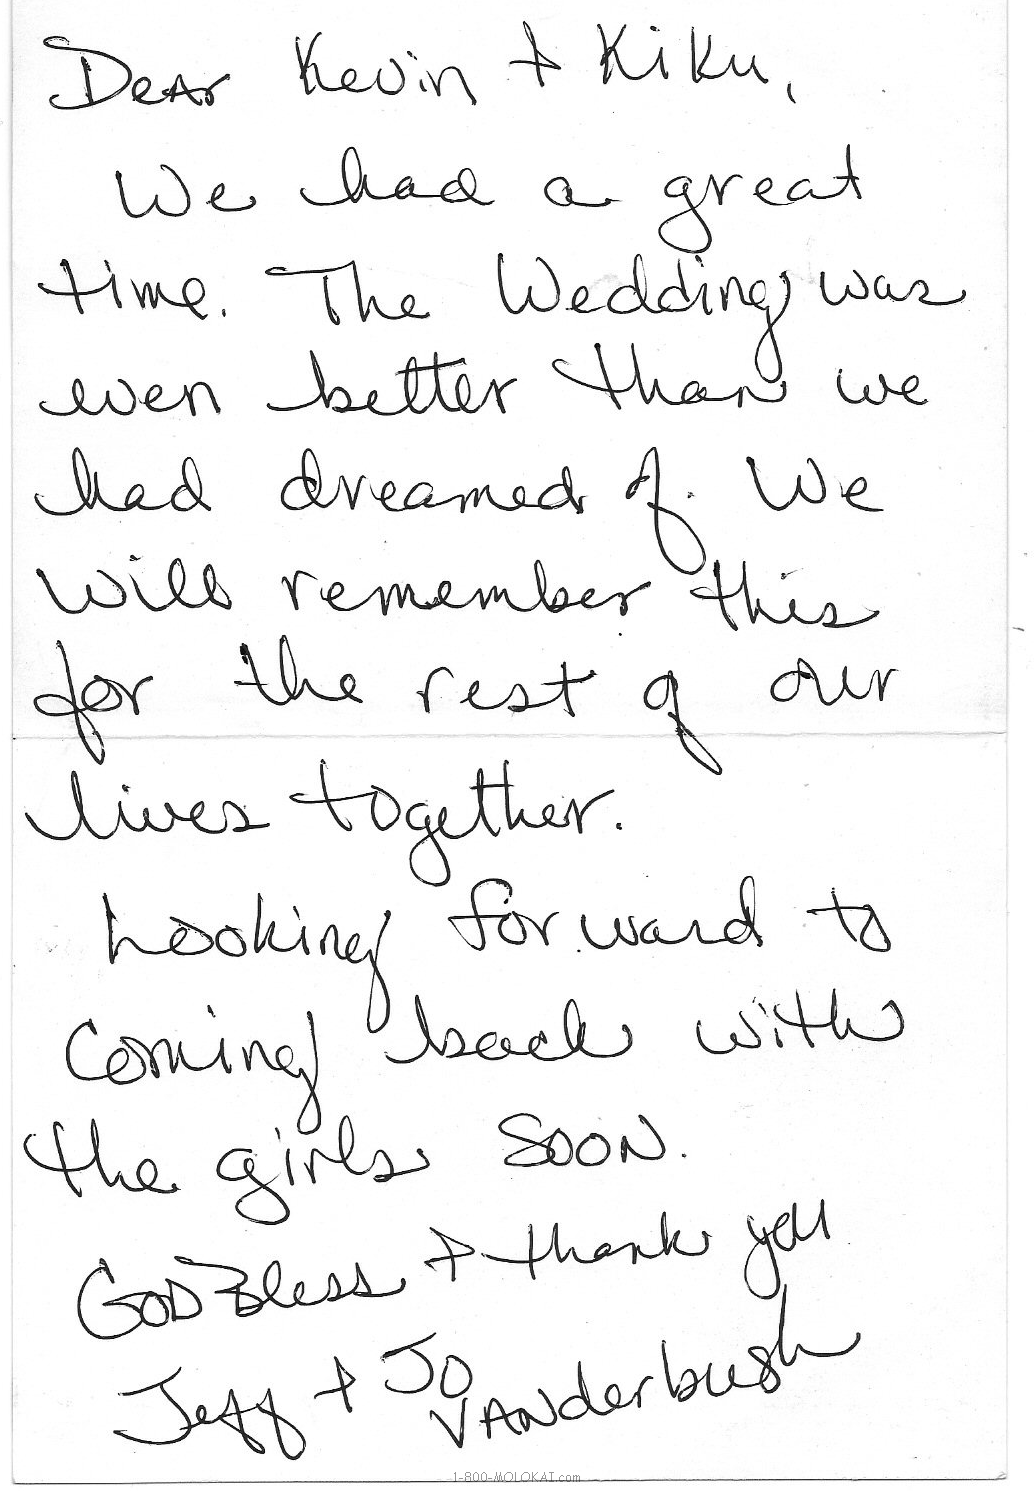 Dear Kevin + Kiku,
We had a great
time. The Wedding was
even better than we
had dreamed of. We
will remember this
for the rest of our
lives together.
Looking forward to
Coming back with
the girls soon.
God Bless + thank you
Jeff + Jo
Vanderbush
1-800-MOLOKAI.com